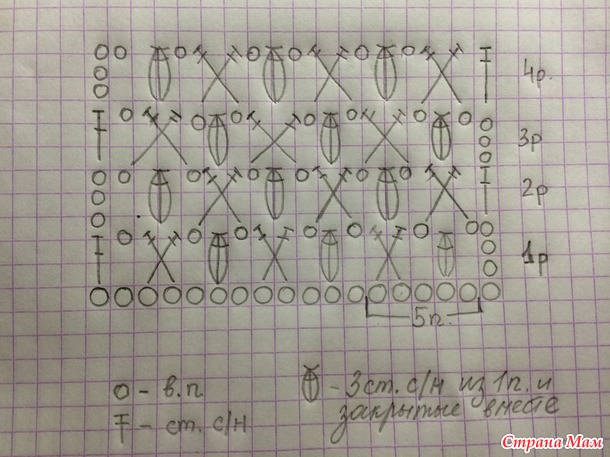 4р.
3р
2р
1р
5п.
о - в.п
- ст. с/н
- 3 ст. с/н из 1 п. и
закрытые вместе
Страна Мам